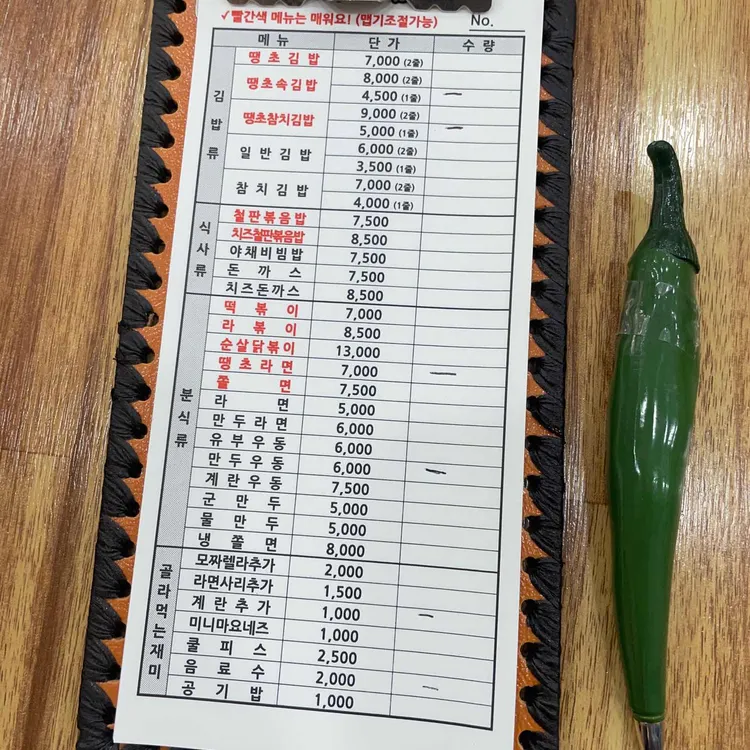 ✓빨간색 메뉴는 매워요! (맵기조절가능) No.
메뉴 단가 수량
김밥류
땡초김밥 7,000 (2줄)
땡초속김밥 8,000 (2줄)
4,500 (1줄) —
땡초참치김밥 9,000 (2줄)
5,000 (1줄) —
일반김밥 6,000 (2줄)
3,500 (1줄)
참치김밥 7,000 (2줄)
4,000 (1줄)
식사류
철판볶음밥 7,500
치즈철판볶음밥 8,500
야채비빔밥 7,500
돈까스 7,500
치즈돈까스 8,500
분식류
떡볶이 7,000
라볶이 8,500
순살닭볶이 13,000
땡초라면 7,000 —
쫄면 7,500
라면 5,000
만두라면 6,000
유부우동 6,000
만두우동 6,000 —
계란우동 7,500
군만두 5,000
물만두 5,000
냉쫄면 8,000
골라먹는재미
모짜렐라추가 2,000
라면사리추가 1,500
계란추가 1,000 —
미니마요네즈 1,000
쿨피스 2,500
음료수 2,000 —
공기밥 1,000